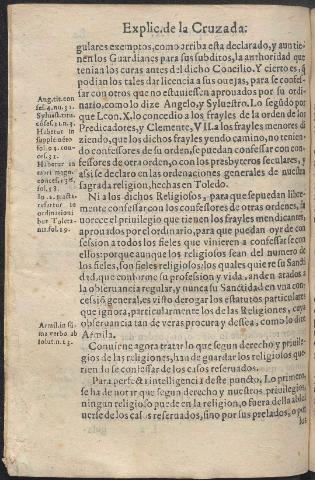 Explic. de la Cruzada:
gulares exemptos, como arriba esta declarado, y aun tie-
nen los Guardianes para sus subditos, la authoridad que
tenian los curas antes del dicho Concilio. Y cierto es, q̃
podian los tales dar licencia a sus ouejas, para se confes-
sar con otros que no estuuiessen aprouados por su ordi-
nario, como lo dize Angelo, y Syluestro. Lo segũdo por
que Leon. X. lo concedio a los frayles de la orden de los
Predicadores, y Clemente, VII. a los frayles menores di
ziendo, que los dichos frayles yendo camino, no tenien-
do confessores de su orden, se puedan confessar con con-
fessores de otra orden, o con los presbyteros seculares, y
assi se declaro en las ordenaciones generales de nuestra
sagrada religion, hechas en Toledo.
Ni a los dichos Religiosos, para que se puedan libre-
mente confessar con los confessores de otras ordenes, fa
uorece el priuilegio que tienen los frayles mendicantes,
aprouados por el ordinario, para que puedan oyr de con
fession a todos los fieles que vinieren a confessarse con
ellos: porque aunque los religiosos sean del numero de
los fieles, son fieles religiosos: los quales quiere su Sancti
dad, que conforme su profession y vida, anden atados a
la obseruancia regular, y nunca su Sanctidad en vna con-
cession general, es visto derogar los estatutos particulares
que ignora, particularmente los de las Religiones, cuya
obseruancia tan de veras procura y dessea, como lo dize
Armila.
Conuiene agora tratar lo que segun derecho y priuile-
gios de las religiones, han de guardar los religiosos que
rien lo se confessar de los casos reseruados.
Para perfecta intelligencia deste puncto, Lo primero,
se ha de notar que segun derecho y nuestros priuilegios,
ningun religioso puede en la religion, o fuera della absol
uerse de los casos reseruados, sino por sus prelados, o por
los
Ang. tit. con
fes. 4. nu. 31.
Syluest. titu.
confes. 1. n. 3.
Habetur in
supplemẽto
fol. 94. con-
ces. 31.
Habetur in
mari magn.
fol. 13.
refertur in
ordinationi
bus Toleta-
nu. fol. 19.
Armil. in sũ
ma verbo ab
solut. n. 13.